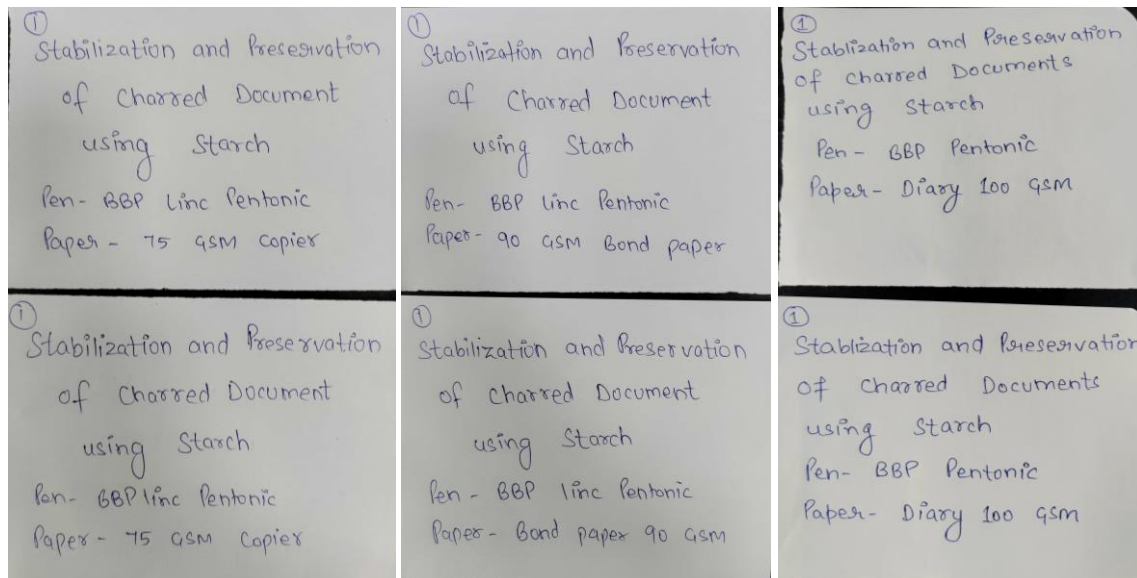 1
Stabilization and Preservation
of Charred Document
using Starch
Pen- BBP Linc Pentonic
Paper - 75 GSM Copier
1
Stabilization and Preservation
of Charred Document
using Starch
Pen- BBP Linc Pentonic
Paper- 90 GSM Bond paper
1
Stablization and Preservation
of Charred Documents
using Starch
Pen- BBP Pentonic
Paper- Diary 100 GSM
1
Stabilization and Preservation
of Charred Document
using Starch
Pen- BBP linc Pentonic
Paper- 75 GSM Copier
1
Stabilization and Preservation
of Charred Document
using Starch
Pen - BBP linc Pentonic
Paper- Bond paper 90 GSM
1
Stablization and Preservation
of Charred Documents
using Starch
Pen- BBP Pentonic
Paper- Diary 100 GSM